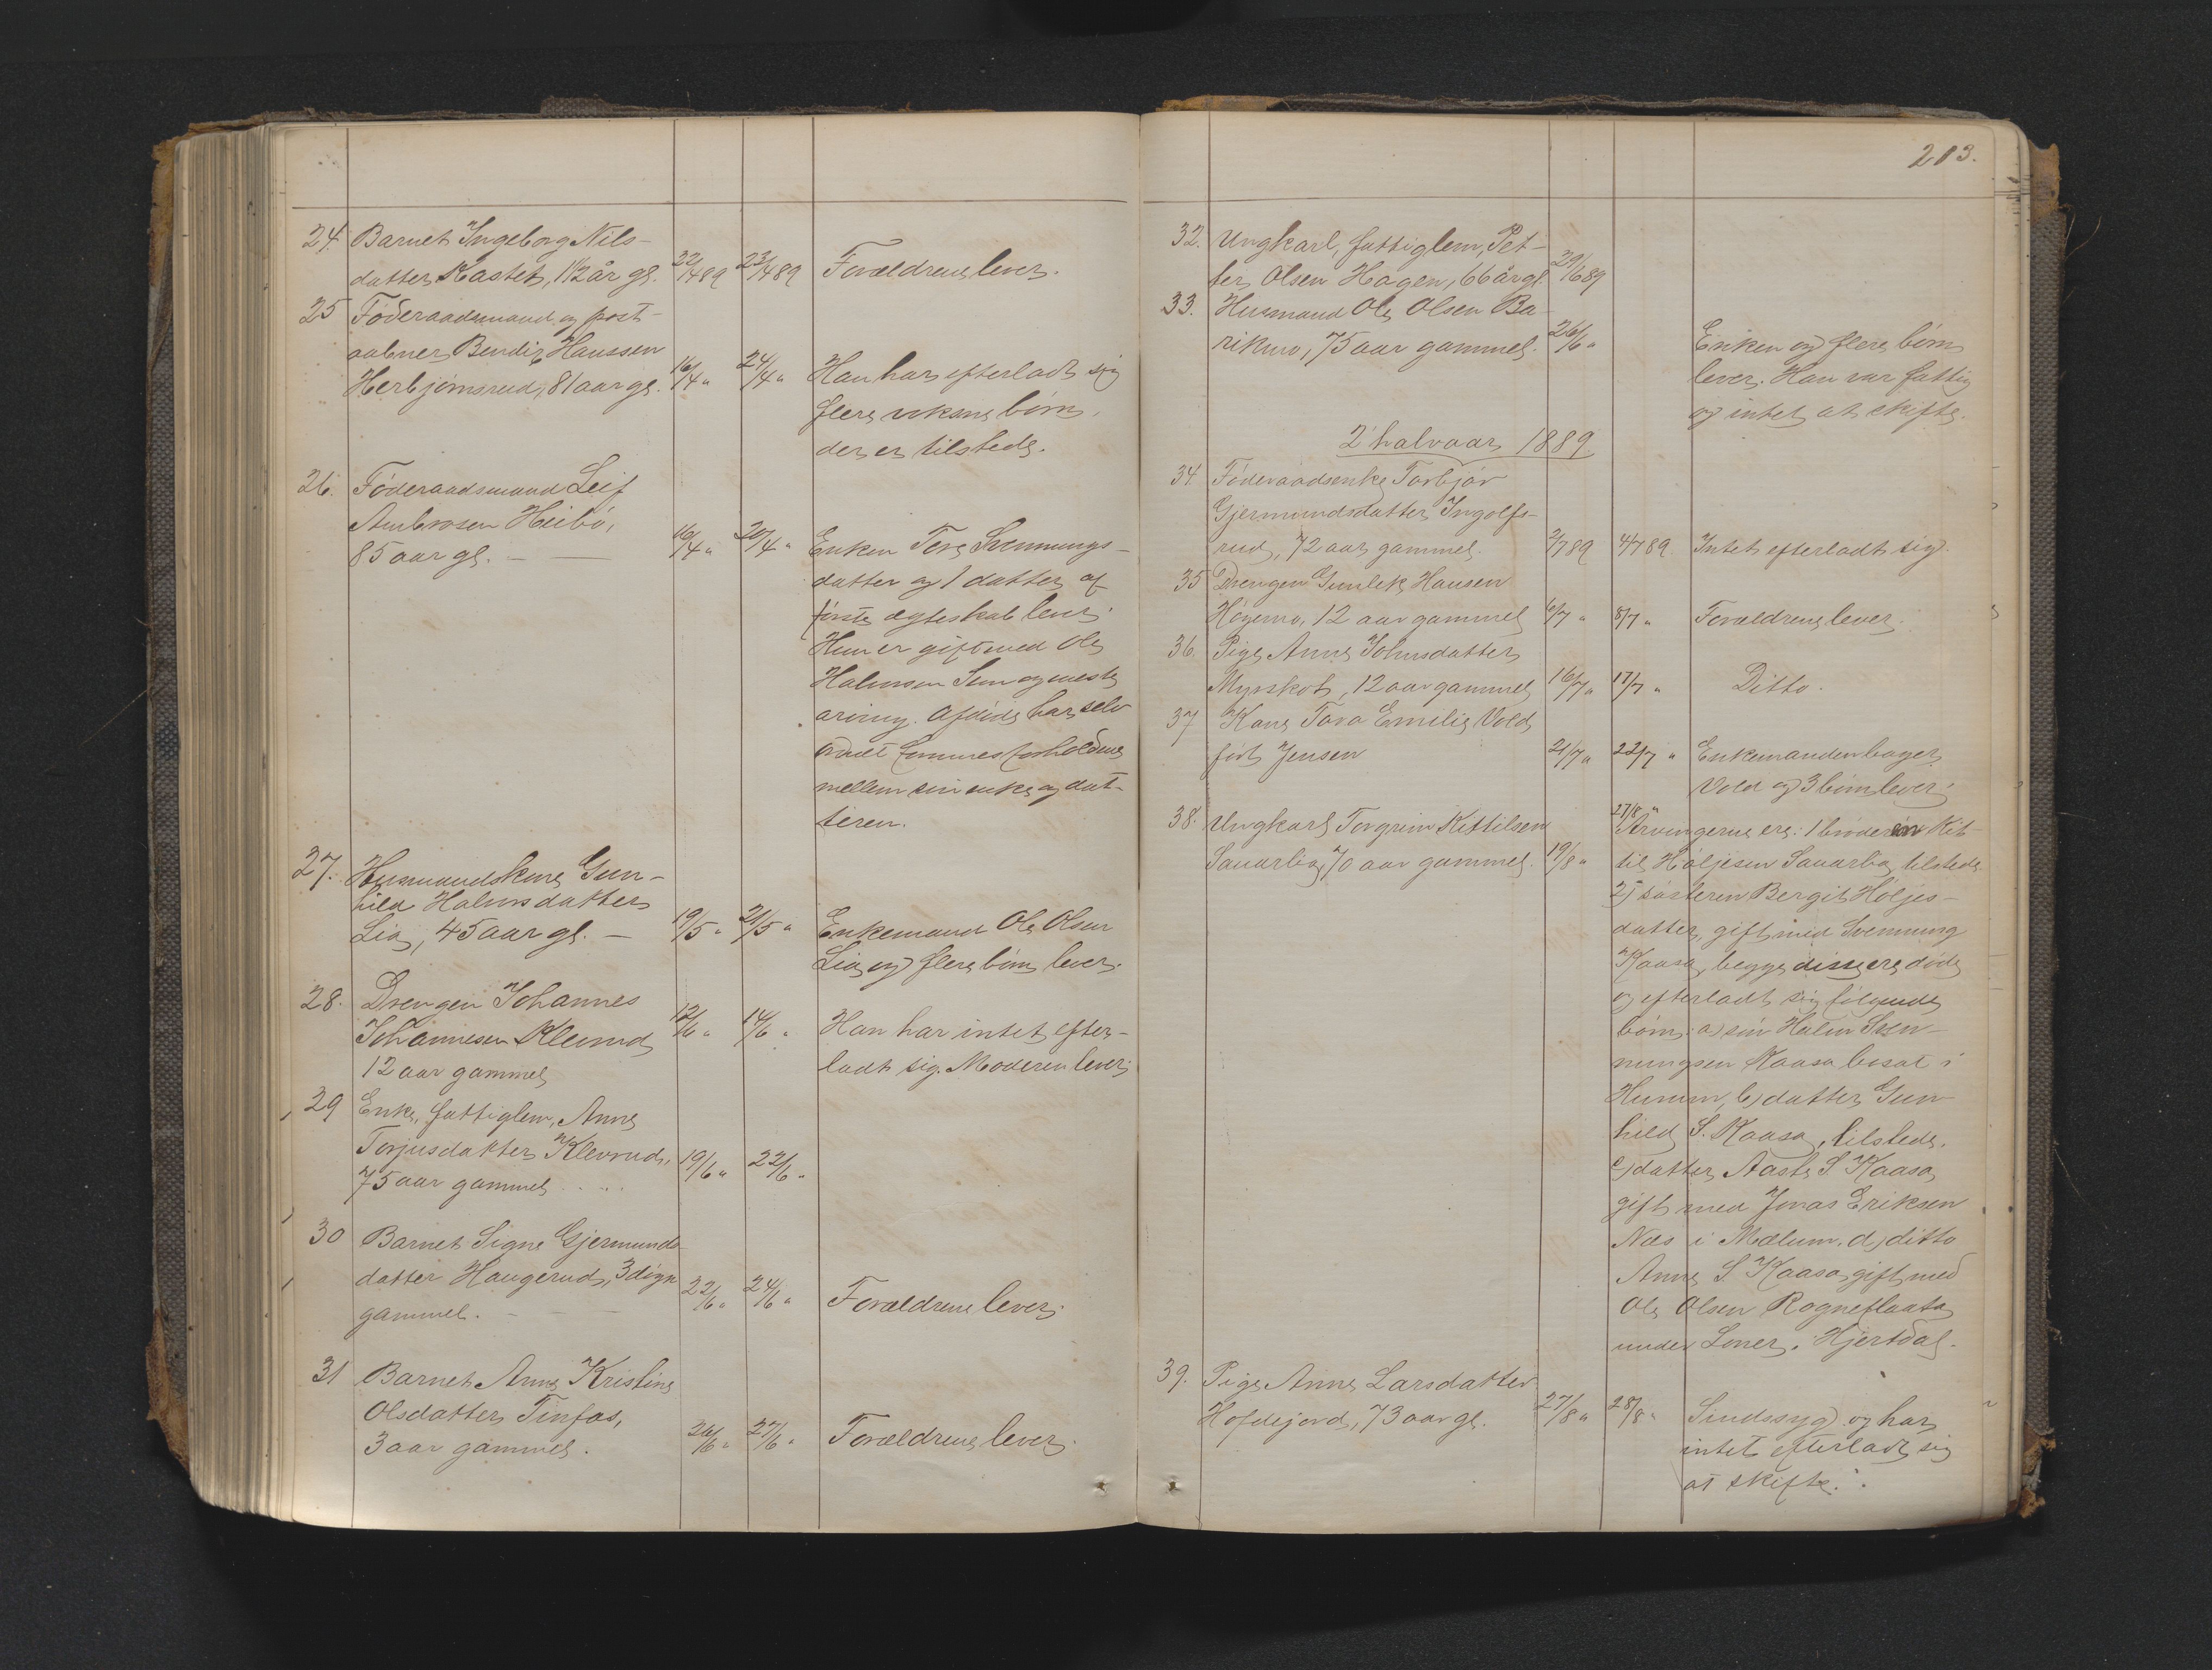 24. Barnet Ingeborg Nils-
datter Kastet, 1 1/2 år gl. 22/4 89 23/4 89 Forældrene lever.
25 Föderaadsmand og post-
aabner Bendix Hanssen
Herbjörnsrud, 81 aar gl. 16/4 " 24/4 " Han har efterladt sig
flere voksne börn,
der er tilstede.
26. Föderaadsmand Leif
Ambrosen Heibö,
85 aar gl. — 16/4 " 20/4 " Enken Tore Svennungs-
datter og 1 datter af
förste ægteskab lever.
Hun er gift med Ole
Halvorsen Sem og eneste
arving. Afdöde har selv
ordnet formuesforholdene
mellem sin enke og dat-
teren.
27. Husmandskone Gun-
hild Halvorsdatter
Lia, 45 aar gl. — 19/5 " 21/5 " Enkemand Ole Olsen
Lia og flere börn lever.
28. Drengen Johannes
Johannesen Klevrud 12/6 " 14/6 " Han har intet efter-
12 aar gammel ladt sig. Moderen lever.
29 Enke, fattiglem, Anne
Torjusdatter Klevrud, 19/6 " 22/6 "
75 aar gammel
30 Barnet Signe Gjermunds-
datter Haugerud, 3 dögn 22/6 " 24/6 " Forældrene lever.
gammel.
31 Barnet Anne Kristine
Olsdatter Tinfos,
3 aar gammel. 26/6 " 27/6 " Forældrene lever.
213.
32. Ungkarl, fattiglem, Pet-
ter Olsen Hagen, 66 år gl. 29/6 89
33. Husmand Ole Olsen Ba-
rikmo, 75 aar gammel. 26/6 " Enken og flere börn
lever. Han var fattig
og intet at skifte.
2' halvaar 1889.
34 Föderaadsenke Torbjör
Gjermundsdatter Ingolfs-
rud, 72 aar gammel. 2/7 89 4/7 89 Intet efterladt sig.
35 Drengen Gunlek Hansen
Högemo, 12 aar gammel 6/7 " 8/7 " Forældrene lever.
36. Pige Anne Johnsdatter
Myrskot, 12 aar gammel 16/7 " 17/7 " Ditto.
37 Kone Tora Emilie Vold
född Jensen 21/7 " 22/7 " Enkemanden bager
Vold og 3 börn lever.
38. Ungkarl Torgrim Kittilsen 27/8 " Arvingerne ere: 1 broderen Kit-
Sauarlia, 70 aar gammel. 19/8 " til Höljesen Sauarlia, tilstede
2) sösteren Bergit Höljes-
datter, gift med Svennung
Kaasa, begge disse ere döde
og efterladt sig fölgende
börn: a) sön Halvor Sven-
nungsen Kaasa bosat i
Hurum, b) datter Gun-
hild S. Kaasa, tilstede.
c) datter Aaste S. Kaasa
gift med Jonas Eriksen
Næs i Mælum. d) ditto
Anne S Kaasa, gift med
Ole Olsen Rogneflaata
under Loner, Hjertdal.
39. Pige Anne Larsdatter
Hofdejord, 73 aar gl. 27/8 " 28/8 " Sindssyg og har
intet efterladt sig
at skifte.